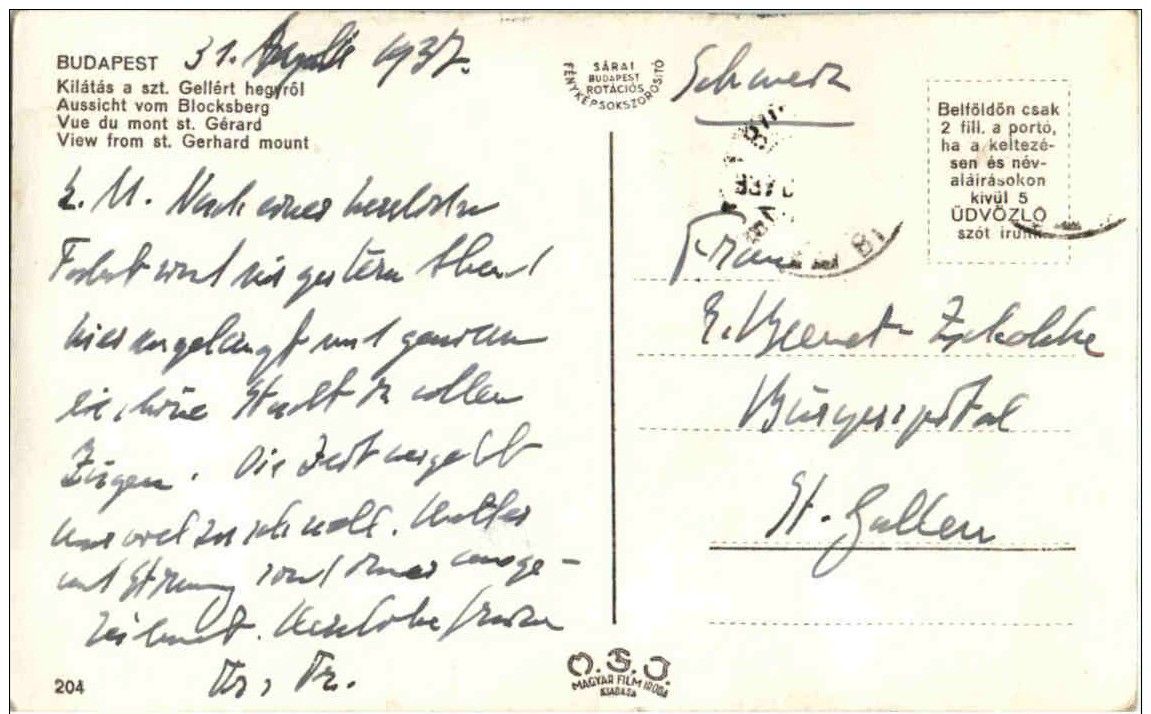 BUDAPEST 31. 1937.
Kilátás a szt. Gellért hegyről
Aussicht vom Blocksberg
Vue du mont st. Gérard
View from st. Gerhard mount
L. M. Nach einer herrlichen
Fahrt sind wir gestern Abend
hier angelangt und geniessen
die schöne Stadt in vollen
Zügen. Die Zeit vergeht
nur viel zu schnell. Wetter
und Stimmung sind immer ausge-
zeichnet. Herzliche Grüsse
Fr.
204
SÁRAI
BUDAPEST
ROTÁCIÓS
FÉNYKÉPSOKSZOROSÍTÓ
O.F.I.
MAGYAR FILM IRODA
KIADÁSA
Schweiz
Belföldön csak
2 fill. a portó,
ha a keltezé-
sen és név-
aláírásokon
kívül 5
ÜDVÖZLŐ
szót írunk.
Frau
E. Zschokke
Bürgerspital
St. Gallen